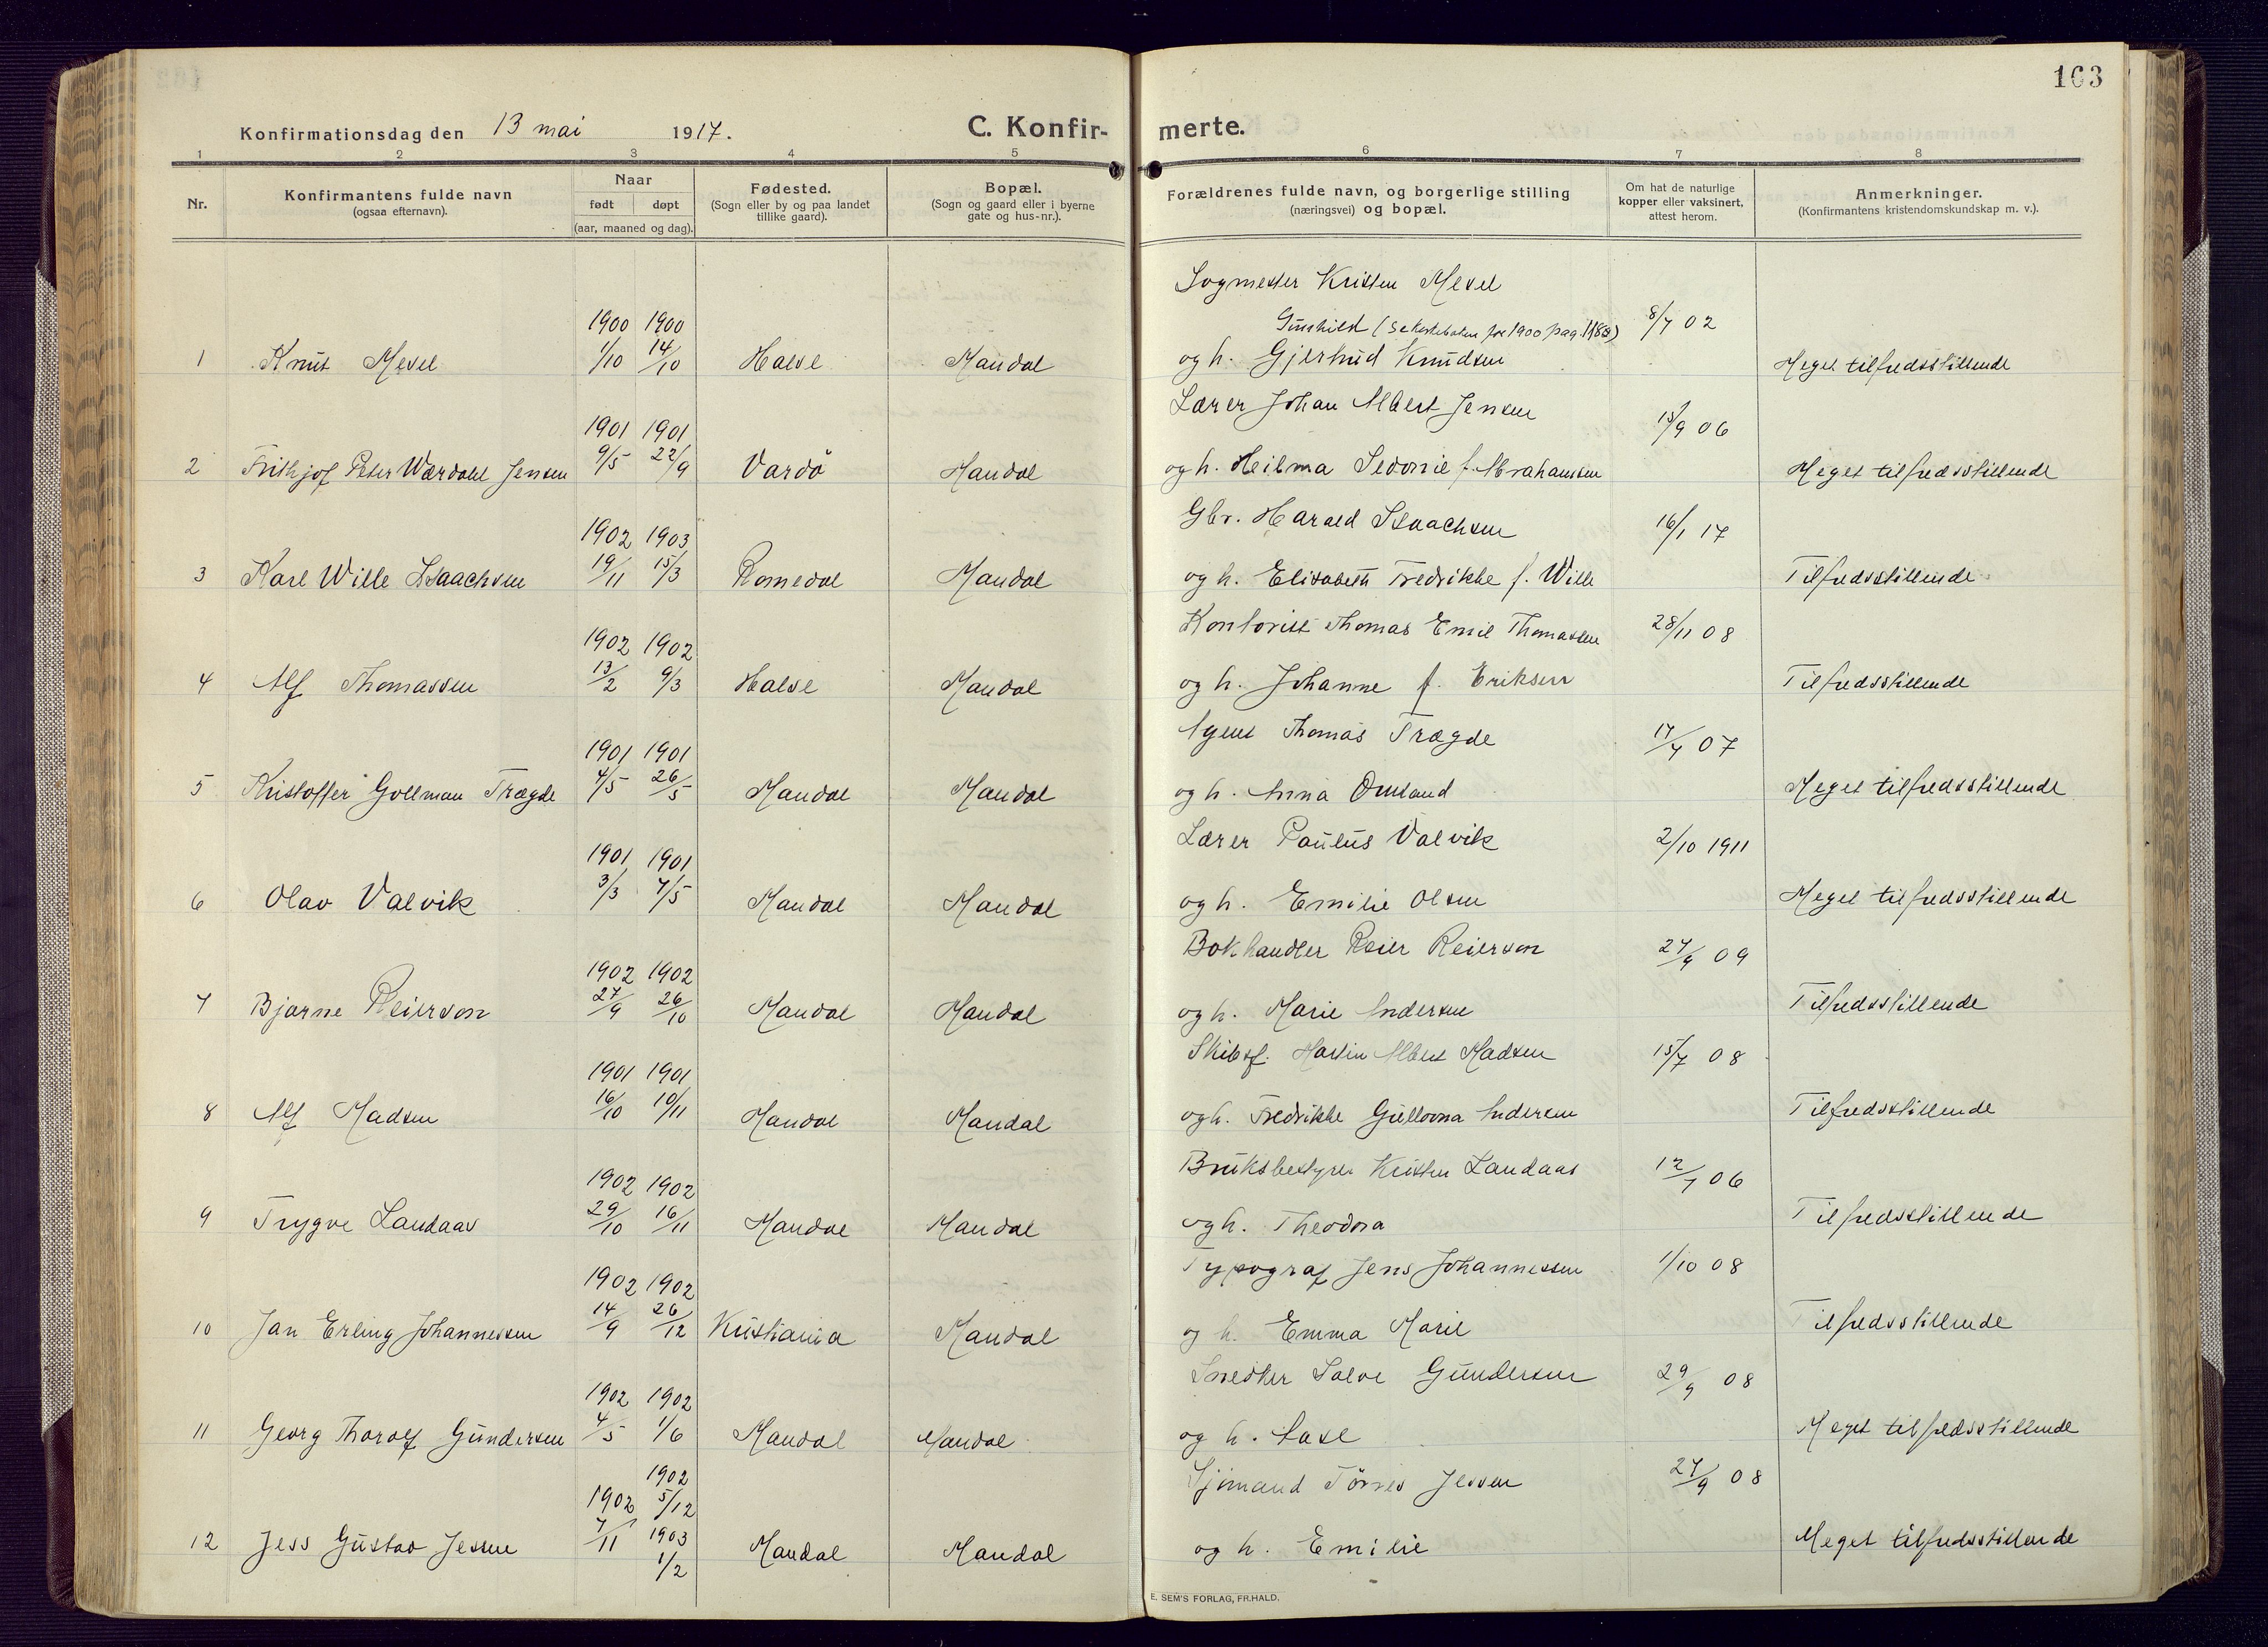 163
Konfirmationsdag den 13 mai 1917.
C. Konfir-
merte.
1 2 3 4 5 6 7 8
Nr.
Konfirmantens fulde navn
(ogsaa efternavn).
Naar
født døpt
(aar, maaned og dag).
Fødested.
(Sogn eller by og paa landet
tillike gaard).
Bopæl.
(Sogn og gaard eller i byerne
gate og hus-nr.).
Forældrenes fulde navn, og borgerlige stilling
(næringsvei) og bopæl.
Om hat de naturlige
kopper eller vaksinert,
attest herom.
Anmerkninger.
(Konfirmantens kristendomskundskap m. v.).
Kristen Mesel
1900 1900 Gunhild (se kirkeboken for 1900 pag. 118) 8/7 02
1 Knut Mesel 1/10 14/10 Halse Mandal og h. Gjertrud Knudsen Meget tilfredsstillende
Lærer Johan Albert Jensen
1901 1901 15/9 06
2 Frithjof Peter Wærdahl Jensen 9/5 22/9 Vardö Mandal og h. Heilma Sedonie f. Abrahamsen Meget tilfredsstillende
Gbr. Harald Isaachsen
1902 1903 16/1 17
3 Karl Wille Isaachsen 19/11 15/3 Romedal Mandal og h. Elisabeth Fredrikke f. Wille Tilfredsstillende
Kontorist Thomas Emil Thomassen
1902 1902 28/11 08
4 Alf Thomassen 13/2 9/3 Halse Mandal og h. Johanne f. Eriksen Tilfredsstillende
Agent Thomas Trægde
1901 1901 17/7 07
5 Kristoffer Gollman Trægde 4/5 26/5 Mandal Mandal og h. Anna Omland Meget tilfredsstillende
Lærer Paulus Valvik
1901 1901 2/10 1911
6 Olav Valvik 3/3 7/5 Mandal Mandal og h. Emilie Olsen Meget tilfredsstillende
Bokhandler Reier Reierson
1902 1902 27/9 09
7 Bjarne Reierson 27/9 26/10 Mandal Mandal og h. Marie Andersen Tilfredsstillende
Skibsf. Martin Albert Madsen
1901 1901 15/7 08
8 Alf Madsen 16/10 10/11 Mandal Mandal og h. Fredrikke Gullovna Andersen Tilfredsstillende
Bruksbestyrer Kristen Landaas
1902 1902 12/7 06
9 Trygve Landaas 29/10 16/11 Mandal Mandal og h. Theodora Tilfredsstillende
Typograf Jens Johannessen
1902 1902 1/10 08
10 Jan Erling Johannessen 14/9 26/12 Kristiania Mandal og h. Emma Marie Tilfredsstillende
Snedker Salve Gundersen
1902 1902 29/9 08
11 Georg Thorolf Gundersen 4/5 1/6 Mandal Mandal og h. Aase Meget tilfredsstillende
1902
Sjømand Törres Jessen
1902 5/12 27/9 08
12 Jess Gustav Jessen 7/11 1903 Mandal Mandal og h. Emilie Meget tilfredsstillende
1/2
E. SEM'S FORLAG, FR.HALD.